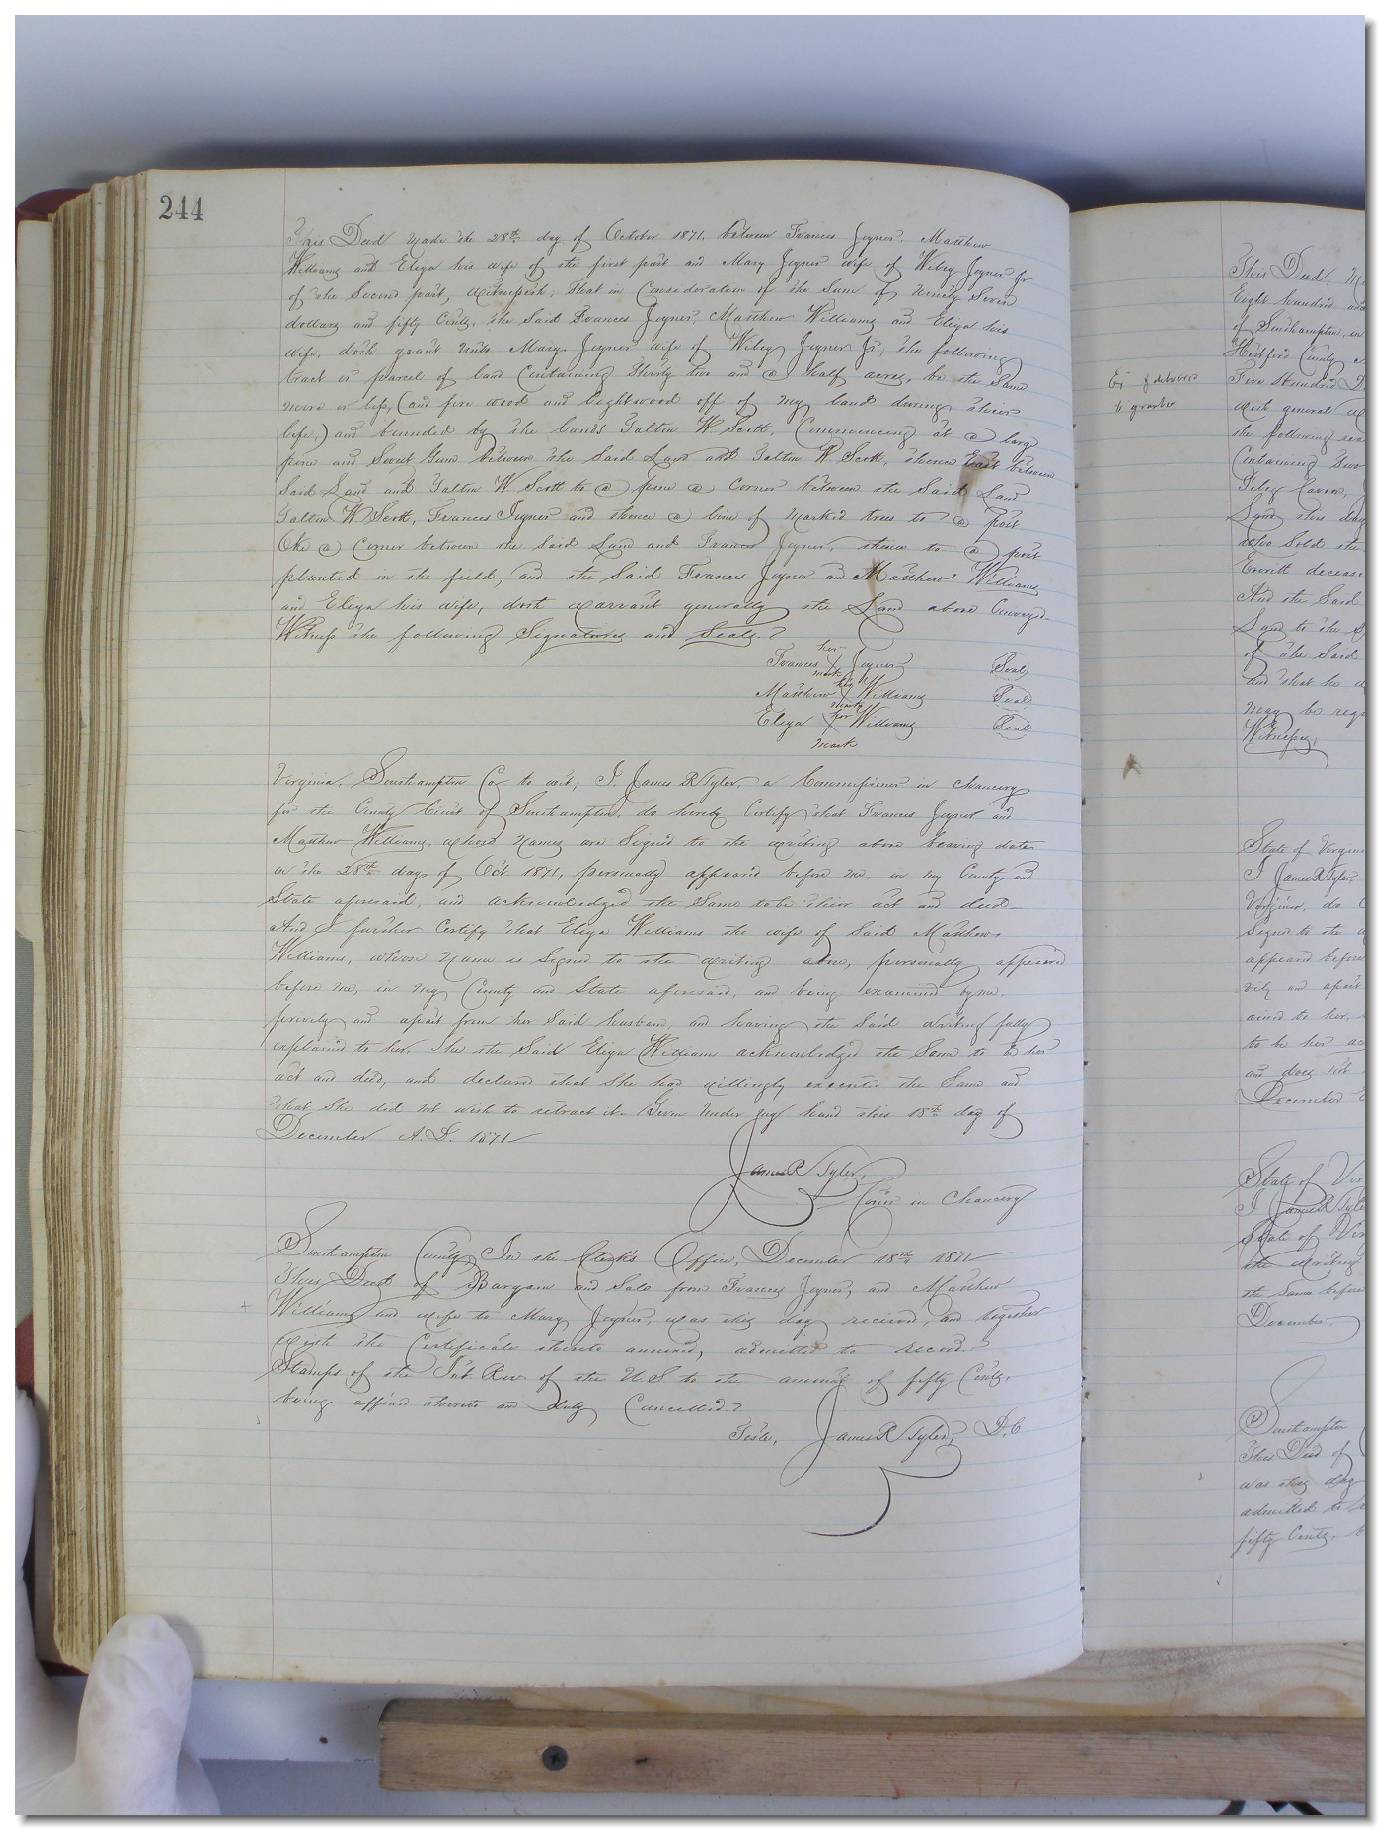 244
This Deed made the 28th day of October 1871, between Frances Joyner, Matthew
Williams and Eliza his wife of the first part and Mary Joyner wife of Wiley Joyner Jr
of the Second part, Witnesseth; that in Consideration of the Sum of Ninety Seven
dollars and fifty Cents, the Said Frances Joyner, Matthew Williams and Eliza his
wife, doth grant unto Mary Joyner wife of Wiley Joyner Jr, the following
tract or parcel of land Containing Thirty two and a half acres, be the Same
more or less, (and fire wood and lightwood off of my land during
life,) and bounded by the lands W Scott, Commencing at a large
pine and Sweet Gum between the Said Land and W Scott, thence East between
Said Land and W Scott to a pine a Corner between the Said Land
W Scott, Frances Joyner and thence a line of marked trees to a post
Oke a Corner between the Said Land and Frances Joyner, thence to a post
planted in the field, and the Said Frances Joyner and Matthew Williams
and Eliza his wife, doth warrant generally the Land above Conveyed.
Witness the following Signatures and Seals.
her
Frances X Joyner Seal
mark
his
Matthew X Williams Seal
mark
her
Eliza X Williams Seal
mark
Virginia, Southampton Co to wit, I, James R Tyler, a Commissioner in Chancery
for the County Court of Southampton, do hereby Certify that Frances Joyner and
Matthew Williams, whose Names are Signed to the writing above bearing date
on the 28th day of Oct 1871, personally appeared before me in my County and
State aforesaid, and acknowledged the Same to be their act and deed
And I further Certify that Eliza Williams the wife of Said Matthew
Williams, whose Name is Signed to the writing above, personally appeared
before me, in my County and State aforesaid, and being examined by me
privily and apart from her Said husband, and having the Said writing fully
explained to her, She the Said Eliza Williams acknowledged the Same to be her
act and deed, and declared that She had willingly executed the Same and
that She did not wish to retract it. Given Under my hand this 18th day of
December A.D. 1871
James R Tyler,
Comr in Chancery
Southampton County, In the Clerk's Office, December 18th 1871
This Deed of Bargain and Sale from Frances Joyner, and Matthew
Williams and wife to Mary Joyner, was this day received, and together
with the Certificate thereto annexed, admitted to record.
Stamps of the Int. Rev of the U.S to the amount of fifty Cents,
being affixed thereto and duly Cancelled.
Teste, James R Tyler, D.C
Ex d delivered
to grantee
This Deed, M
Eight hundred and
of Southampton, in
Hertford County
Five Hundred D
with general
the following
Containing
Land this day
also Sold the
Everett deceas
And the Said
Land to the S
of the Said
and that he
may be
Witness,
State of Virgin
I James R Tyler
Virginia, do
Signed to the
appeared before
vily and apart
ained to her,
to be her ac
and does not
December
State of Vir
I James R Tyle
State of Vir
the writing
the Same before
December,
Southampton
This Deed of
was this day
admitted to
fifty Cents,